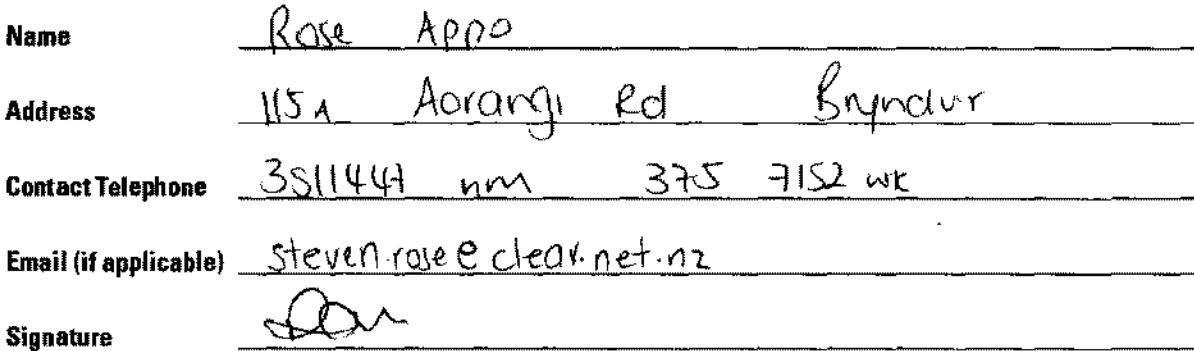 Name Rose Appo
Address 115A Aorangi Rd Bryndwr
Contact Telephone 3511447 hm 375 7152 wk
Email (if applicable) steven.rose@clear.net.nz
Signature